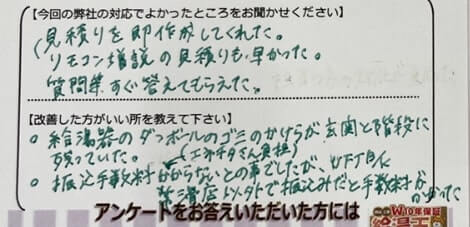 【今回の弊社の対応でよかったところをお聞かせください】
見積りを即作成してくれた。
リモコン増設の見積りも早かった。
質問等すぐ答えてもらえた。
【改善した方がいい所を教えて下さい】
○ 給湯器のダンボールのゴミのかけらが玄関と階段に
残っていた。(エネチタさん負担)
○ 振込手数料かからないとの事でしたが、
店以外で振込みだと手数料かかった
アンケートをお答えいただいた方には
W10年保証